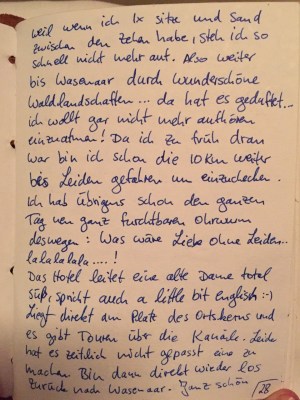 weil wenn ich 1x sitze und Sand
zwischen den Zehen habe, steh ich so
schnell nicht mehr auf. Also weiter
bis Wasenaar durch wunderschöne
Waldlandschaften... da hat es geduftet...
ich wollt gar nicht mehr aufhören
einzuatmen! Da ich zu früh dran
war bin ich schon die 10 km weiter
bis Leiden gefahren um einzuchecken.
Ich hab übrigens schon den ganzen
Tag nen ganz furchtbaren Ohrwurm
deswegen: Was wäre Liebe ohne Leiden...
lalalalala....!
Das Hotel leitet eine alte Dame total
süß, spricht auch a little bit english :-)
Liegt direkt am Platz des Ortskerns und
es gibt Touren über die Kanäle. Leider
hat es zeitlich nicht gepasst eine zu
machen. Bin dann direkt wieder los
zurück nach Wasenaar. Ganz schön
28